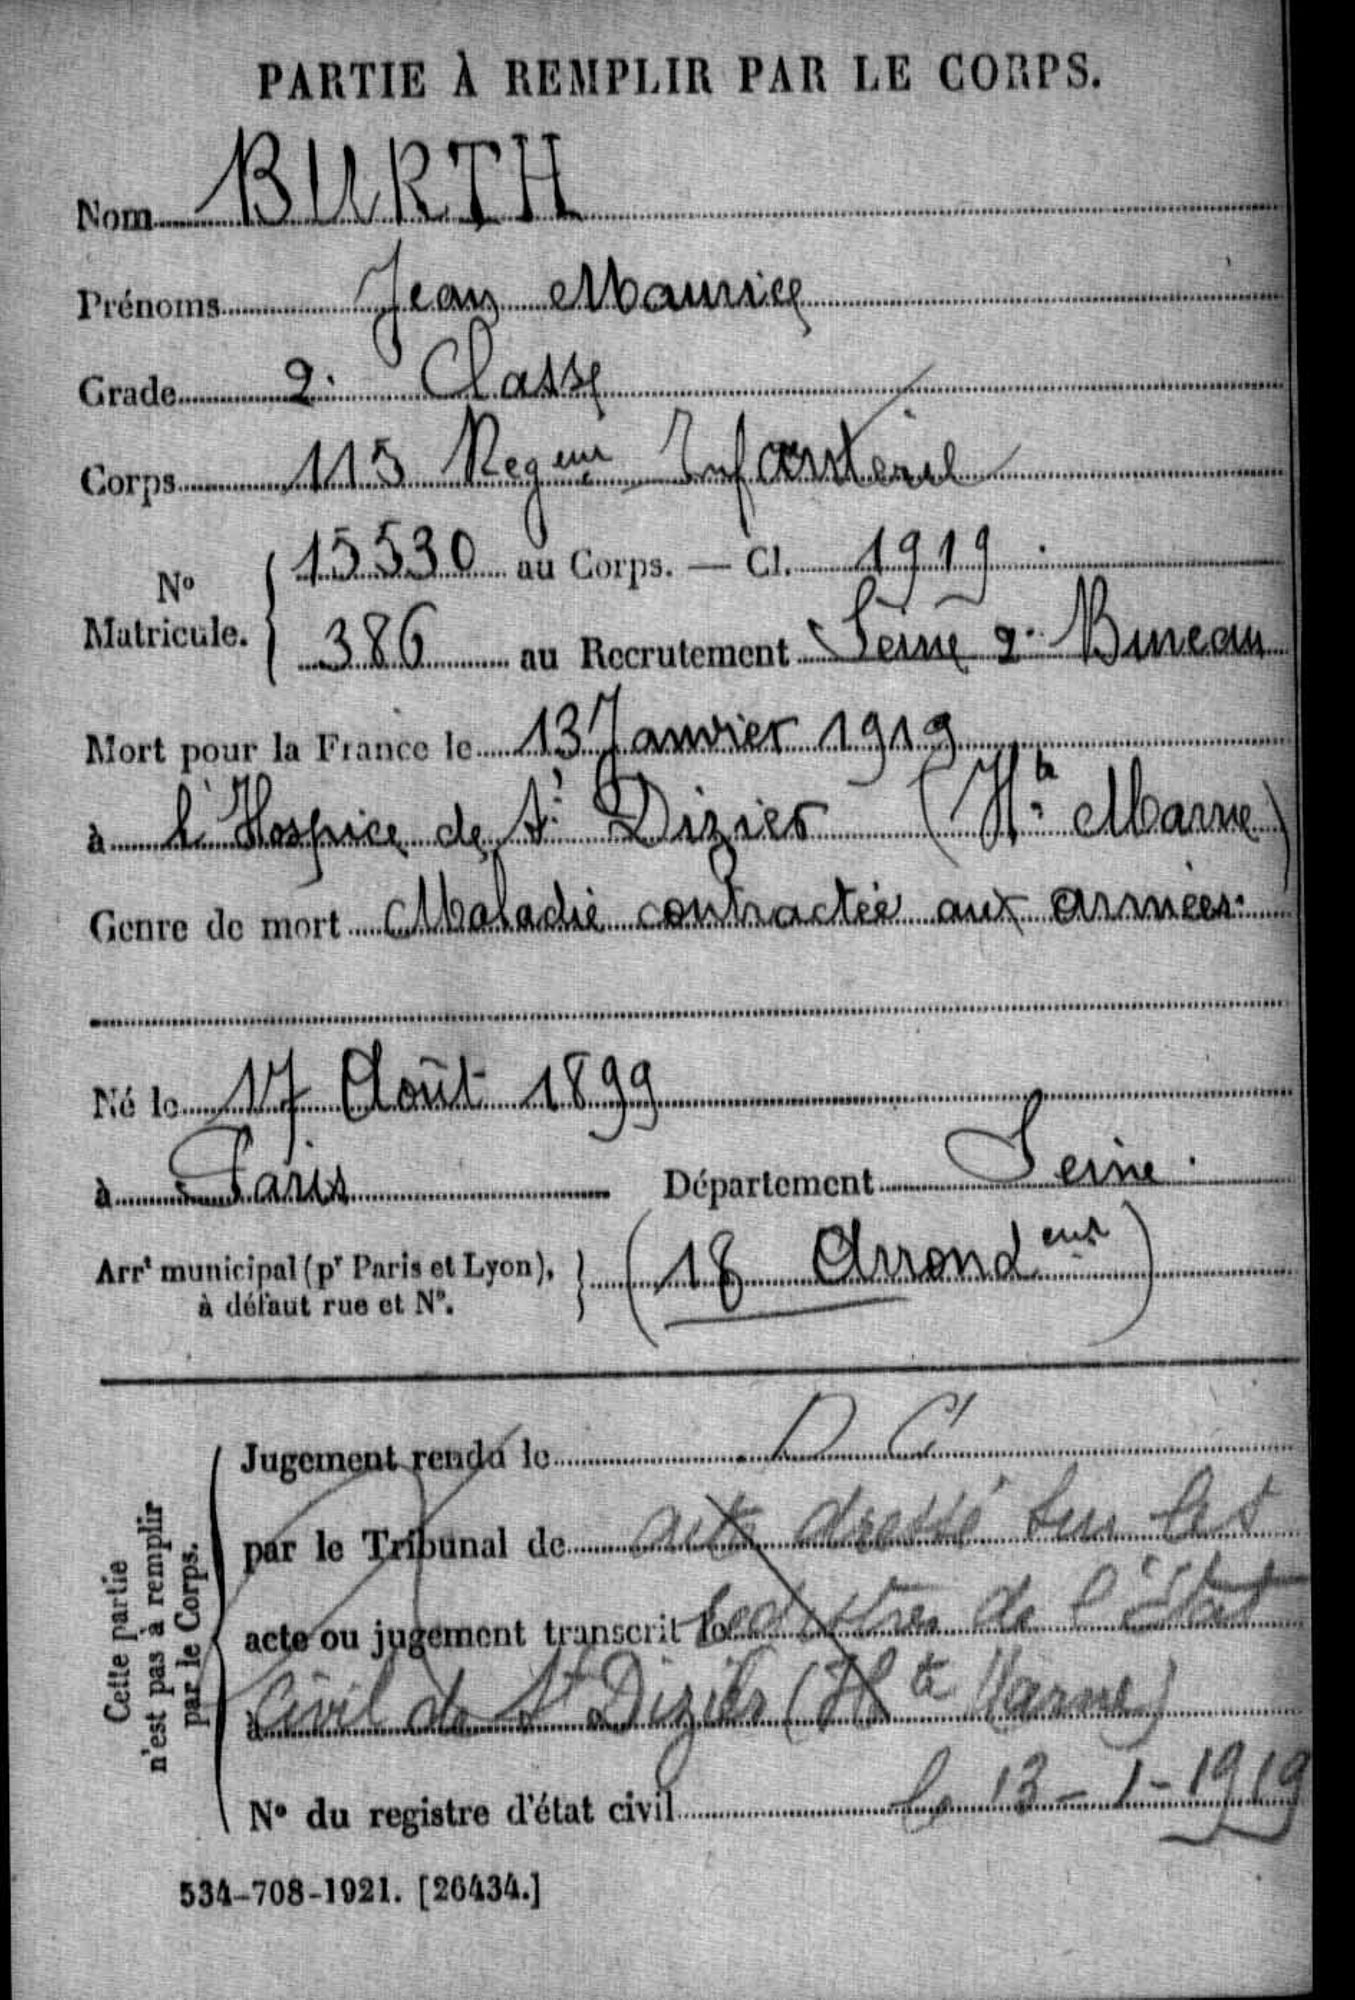 PARTIE À REMPLIR PAR LE CORPS.
Nom BURTH
Prénoms Jean Maurice
Grade 2e Classe
Corps 115 Regent Infanterie
No Matricule. { 15530 au Corps. — Cl. 1919
386 au Recrutement Seine 2e Bureau
Mort pour la France le 13 Janvier 1919
à l'Hospice de St Dizier (Hte Marne)
Genre de mort Maladie contractée aux armées
Né le 17 Août 1899
à Paris Département Seine
Arrt municipal (pr Paris et Lyon), à défaut rue et No. } (18 Arrondent)
Cette partie n'est pas à remplir par le Corps.
Jugement rendu le D C
par le Tribunal de acte dressé sur les
acte ou jugement transcrit le registres de l'Etat
à Civil de St Dizier (Hte Marne)
No du registre d'état civil le 13-1-1919
534-708-1921. [26434.]